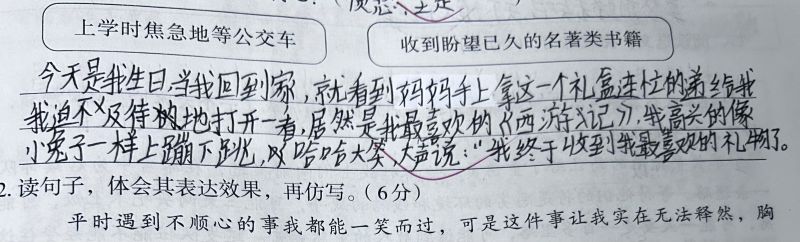 上学时焦急地等公交车
收到盼望已久的名著类书籍
今天是我生日,当我回到家,就看到妈妈手上拿这一个礼盒连忙的弟给我
我迫不及待的地打开一看,居然是我最喜欢的《西游记》,我高兴的像
小兔子一样上蹦下跳,哈哈大笑,大声说:"我终于收到我最喜欢的礼物了。
2. 读句子,体会其表达效果,再仿写。(6分)
平时遇到不顺心的事我都能一笑而过,可是这件事让我实在无法释然,胸